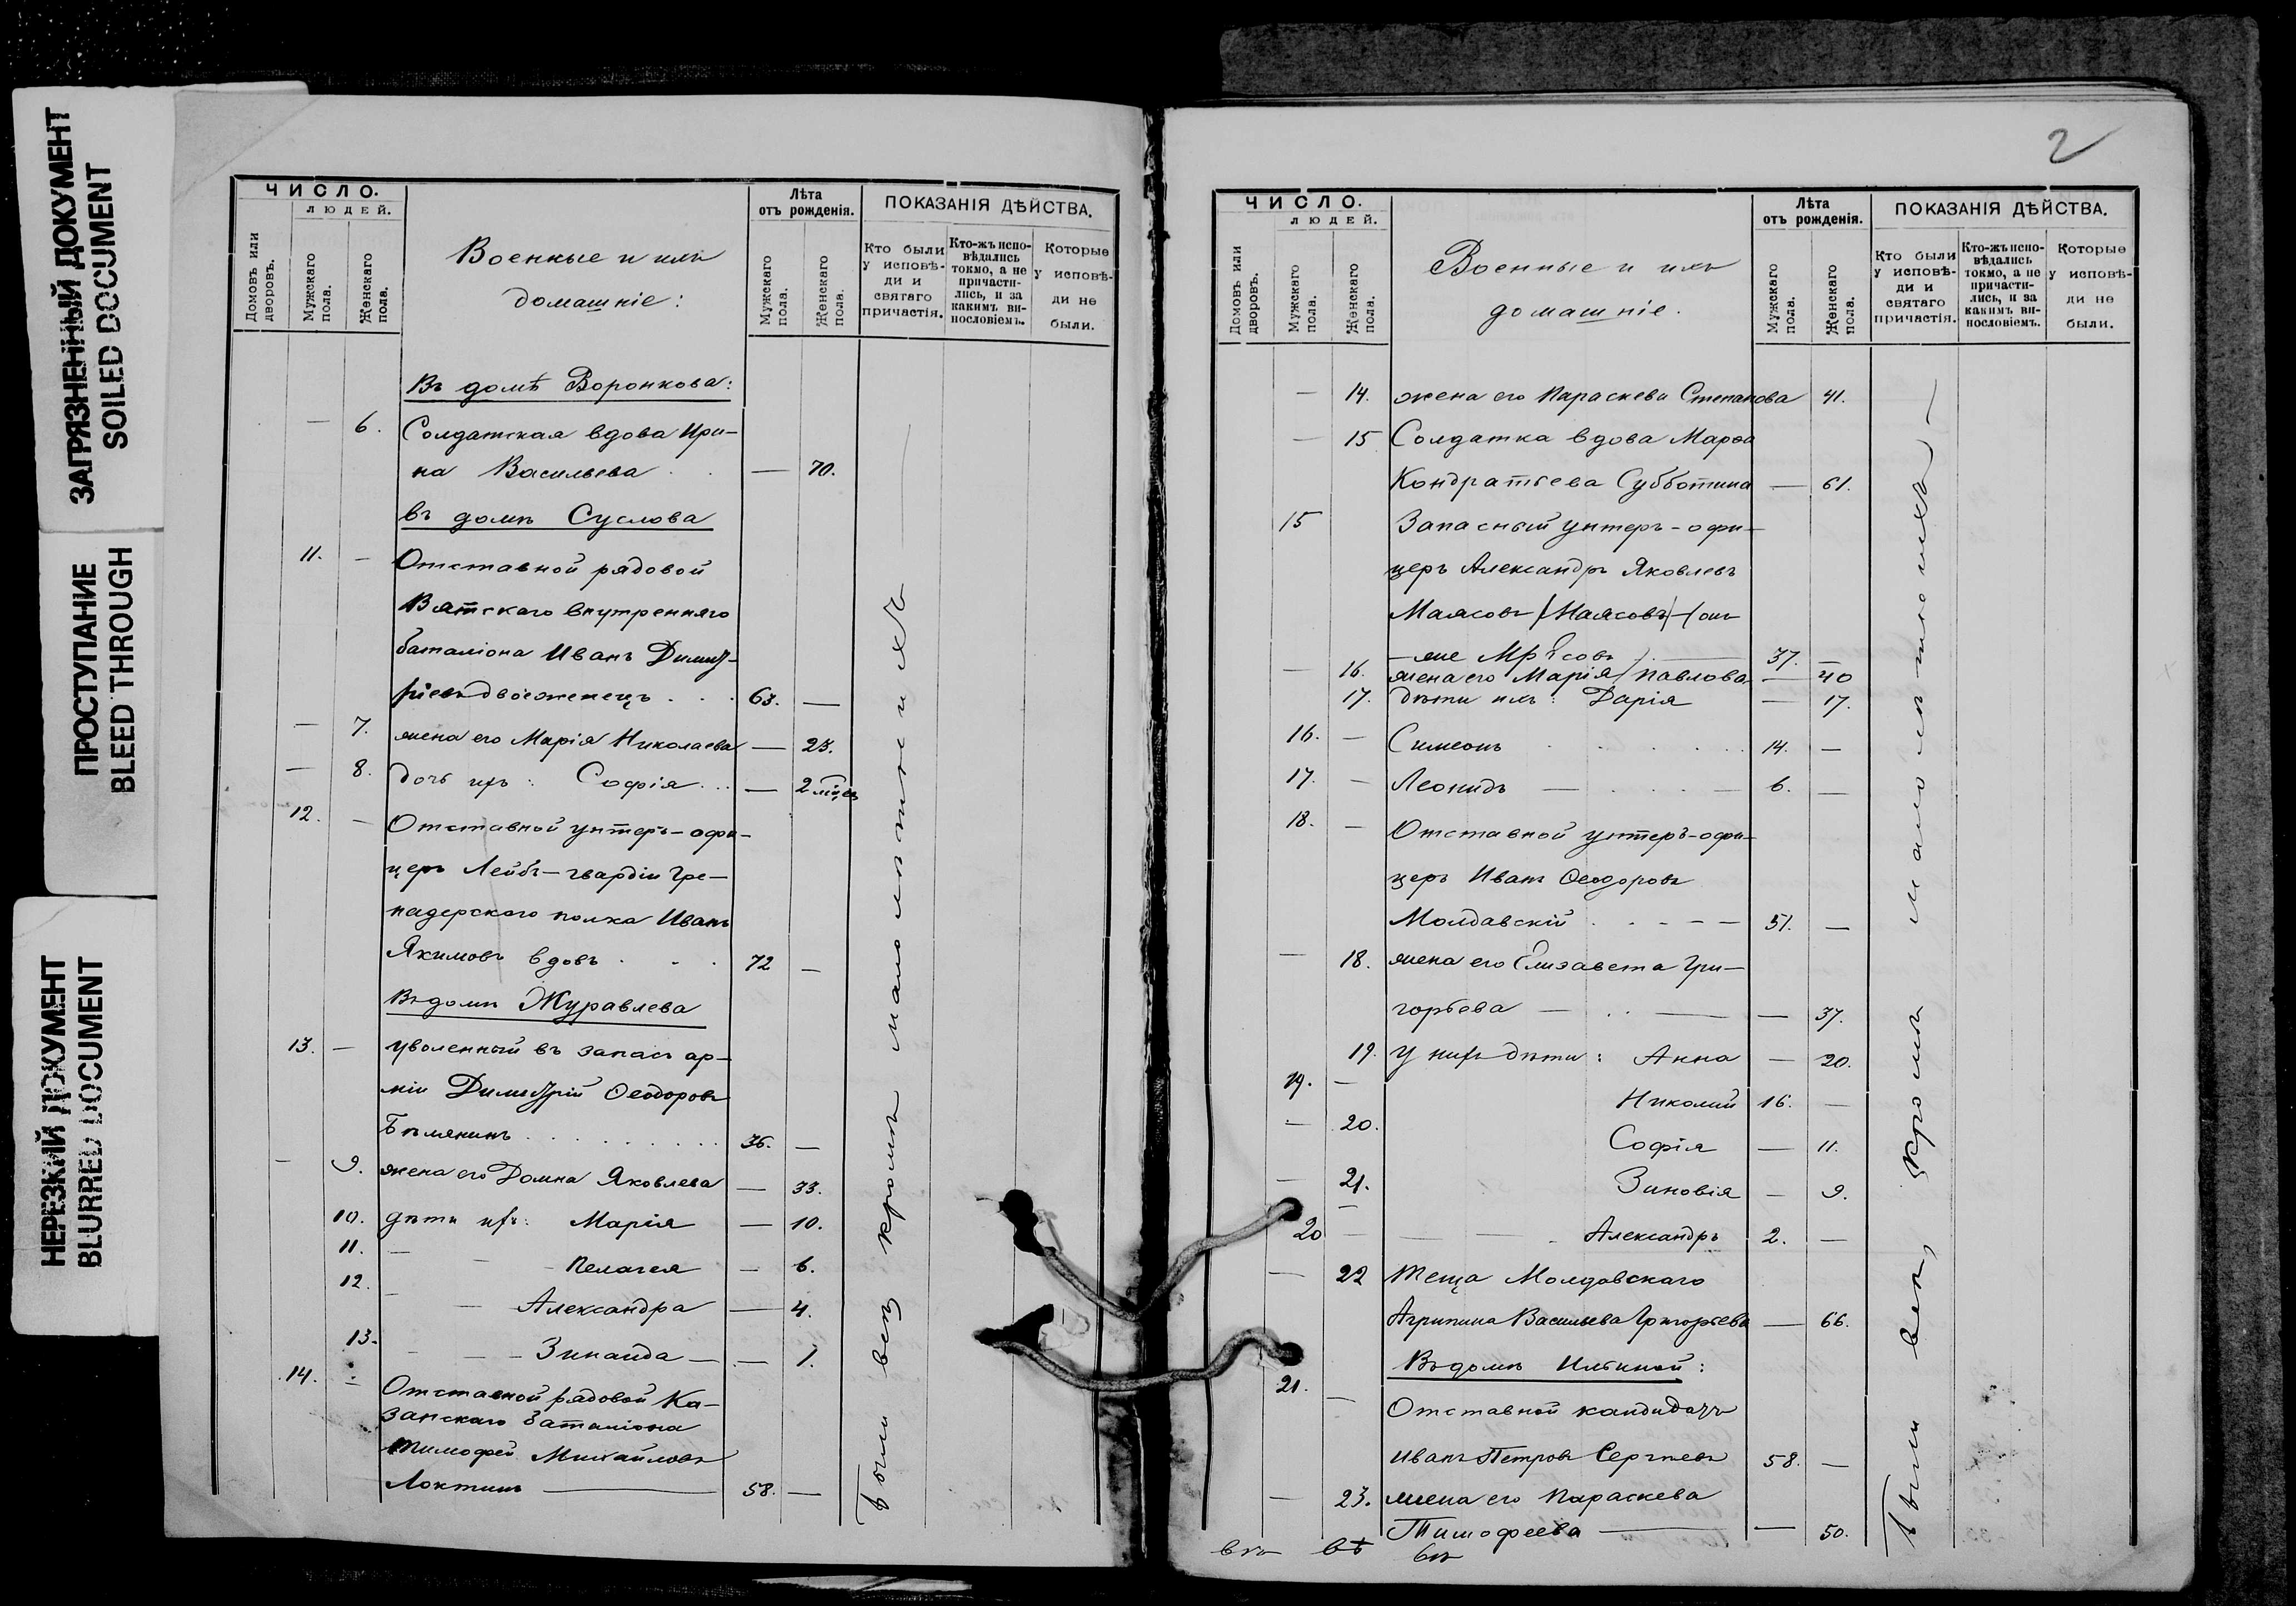 ЗАГРЯЗНЕННЫЙ ДОКУМЕНТ
SOILED DOCUMENT
ПРОСТУПАНИЕ
BLEED THROUGH
НЕРЕЗКИЙ ДОКУМЕНТ
BLURRED DOCUMENT
ЧИСЛО.
ЛЮДЕЙ.
Домовъ или дворовъ.
Мужскаго пола.
Женскаго пола.
Военные и ихъ
домашніе:
Лѣта
отъ рожденія.
Мужскаго пола.
Женскаго пола.
ПОКАЗАНІЯ ДѢЙСТВА.
Кто были
у исповѣ-
ди и
святаго
причастія.
Кто-жъ испо-
вѣдались
токмо, а не
причасти-
лись, и за
какимъ ви-
нословіемъ.
Которые
у исповѣ-
ди не
были.
Въ домѣ Воронкова:
— 6. Солдатская вдова Ири-
на Васильева . . — 70.
въ домѣ Суслова
11. — Отставной рядовой
Вятскаго внутренняго
баталіона Иванъ Димит-
ріевъ двоеженецъ . . . 63. —
— 7. жена его Марія Николаева — 23.
— 8. дочь ихъ: Софія . . . — 2 мѣс
12. — Отставной унтеръ-офи-
церъ Лейбъ-гвардіи Гре-
надерскаго полка Иванъ
Якимовъ вдовъ . . . 72 —
Въ домѣ Журавлева
13. — уволенный въ запасъ ар-
міи Димитрій Ѳеодоровъ
Бѣлякинъ . . . . . . . . . 36. —
— 9. жена его Домна Яковлева — 33.
10. дѣти ихъ: Марія — 10.
11. — — Пелагея — 6.
12. — — Александра — 4.
13. — — Зинаида — — 1.
14. — Отставной рядовой Ка-
занскаго баталіона
Тимофей Михайловъ
Локтинъ — 58. —
Были всѣ кромѣ малолѣтнихъ
2
ЧИСЛО.
ЛЮДЕЙ.
Домовъ или дворовъ.
Мужскаго пола.
Женскаго пола.
Военные и ихъ
домашніе.
Лѣта
отъ рожденія.
Мужскаго пола.
Женскаго пола.
ПОКАЗАНІЯ ДѢЙСТВА.
Кто были
у исповѣ-
ди и
святаго
причастія.
Кто-жъ испо-
вѣдались
токмо, а не
причасти-
лись, и за
какимъ ви-
нословіемъ.
Которые
у исповѣ-
ди не
были.
— 14. жена его Параскева Степанова 41.
— 15 Солдатка вдова Марѳа
Кондратьева Субботина — 61.
15 Запасный унтеръ-офи-
церъ Александръ Яковлевъ
Маясовъ (Маясовъ) (онъ
— же Мрясовъ) 37. —
— 16. жена его Марія Павлова — 40
17. дѣти ихъ: Дарія — 17.
16. — Симеонъ . . . . . 14. —
17. — Леонидъ — . . . — 6. —
18. — Отставной унтеръ-офи-
церъ Иванъ Ѳеодоровъ
Молдавскій . - - - — 51. —
— 18. жена его Елизавета Гри-
горьева — . . — — 37.
19. У нихъ дѣти: Анна — 20.
19. — Николай 16. —
— 20. Софія — 11.
— 21. Зиновія — 9.
20 — — — Александръ 2. —
— 22 Теща Молдавскаго
Агрипина Васильева Григорьева — 66.
Въ домѣ Ильиной:
21. — Отставной кандидатъ
Иванъ Петровъ Сергѣевъ 58. —
— 23. жена его Параскева
Тимофеева — — 50.
Были всѣ, кромѣ малолѣтнихъ —